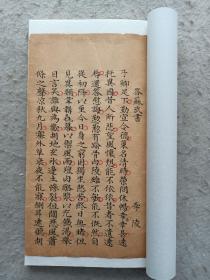 答蘇武書
李陵
子卿足下勤宣令德策名清時榮問休暢幸甚幸甚遠
託異國昔人所悲望風懷想能不依依昔者不遺遠
辱還答慰誨懃懃有踰骨肉陵雖不敏能不慨然自
從初降以至今日身之窮困獨坐愁苦終日無睹但
見異類韋韝毳幕以禦風雨羶肉酪漿以充飢渴舉
目言笑誰與為歡胡地玄冰邊土慘裂但聞悲風蕭
條之聲涼秋九月塞外草衰夜不能寐側耳遠聽胡